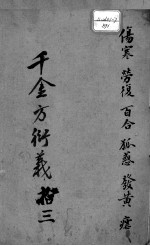 傷寒 勞復 百合 狐惑 發黃 瘧
千金方衍義 拾三